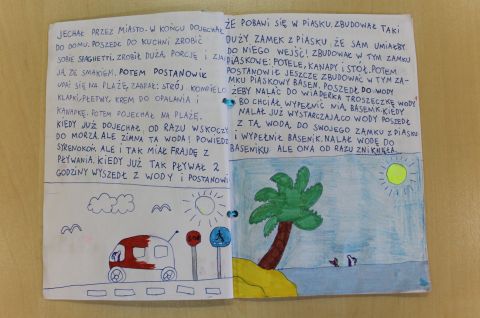 JECHAŁ PRZEZ MIASTO. W KOŃCU DOJECHAŁ
DO DOMU. POSZEDŁ DO KUCHNI ZROBIĆ
SOBIE SPAGHETTI. ZROBIŁ DUŻĄ PORCJĘ I ZJA
JĄ ZE SMAKIEM. POTEM POSTANOWIŁ
UDAĆ SIĘ NA PLAŻĘ. ZABRAŁ: STRÓJ KĄPIELO
KLAPKI, PŁETWY, KREM DO OPALANIA I
KANAPKĘ. POTEM POJECHAŁ NA PLAŻĘ.
KIEDY JUŻ DOJECHAŁ, OD RAZU WSKOCZY
DO MORZA. ALE ZIMNA TA WODA! POWIEDZ
SYRENOKOŃ ALE I TAK MIAŁ FRAJDĘ Z
PŁYWANIA. KIEDY JUŻ TAK PŁYWAŁ 2
GODZINY WYSZEDŁ Z WODY I POSTANOWI
ŻE POBAWI SIĘ W PIASKU. ZBUDOWAŁ TAKI
DUŻY ZAMEK Z PIASKU, ŻE SAM UMIAŁBY
DO NIEGO WEJŚĆ! ZBUDOWAŁ W TYM ZAMKU
PIASKOWE: FOTELE, KANAPY I STÓŁ. POTEM
POSTANOWIŁ JESZCZE ZBUDOWAĆ W TYM ZA-
MKU PIASKOWY BASEN. POSZEDŁ DO WODY
ŻEBY NALAĆ DO WIADERKA TROSZECZKĘ WODY
BO CHCIAŁ WYPEŁNIĆ NIĄ BASEN. KIEDY
NALAŁ JUŻ WYSTARCZAJĄCO WODY POSZEDŁ
Z TĄ WODĄ DO SWOJEGO ZAMKU Z PIASKU
I WYPEŁNIŁ BASENIK. NALAŁ WODĘ DO
BASENIKU ALE ONA OD RAZU ZNIKNĘŁA.